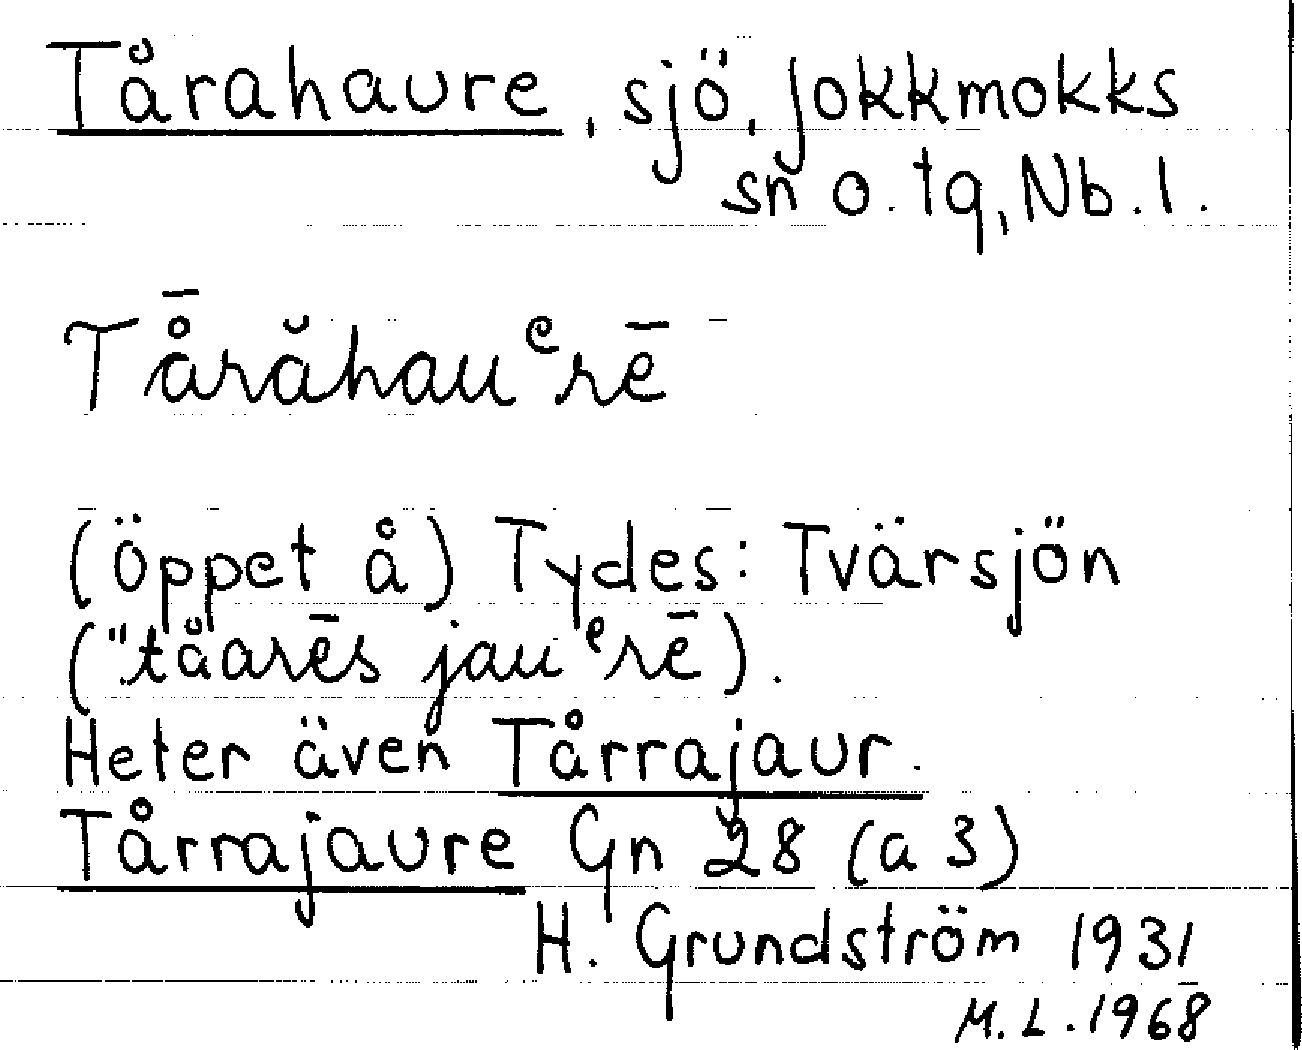 Tårahaure, sjö, Jokkmokks
sn o. tg, Nb. l.
Tå̄răhauᵉrē
(öppet å) Tydes: Tvärsjön
("tåarēs jauᵉrē).
Heter även Tårrajaur.
Tårrajaure Gn 28 (a 3)
H. Grundström 1931
M. L. 1968